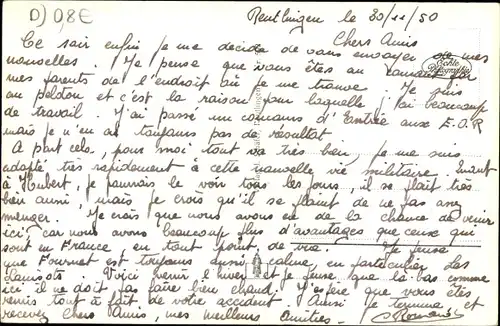 D) 0,8€
Reutlingen le 30/11/50
Chers Amis
Ce soir enfin je me décide de vous envoyer de mes
nouvelles. Je pense que vous êtes au courant par
mes parents de l'endroit où je me trouve. Je suis
au peloton et c'est la raison pour laquelle j'ai beaucoup
de travail. J'ai passé un concours d'Entrée aux E.O.R
mais je n'en ai toujours pas de résultat
A part cela, pour moi tout va très bien, je me suis
adapté très rapidement à cette nouvelle vie militaire. Quant
à Hubert, je pourrais le voir tous les jours, il se plaît très
bien aussi, mais je crois qu'il se plaint de ne pas assez
manger. Je crois que nous avons eu de la chance de venir
ici, car nous avons beaucoup plus d'avantages que ceux qui
sont en France, en tout point de vue. Je pense
que Fournet est toujours aussi calme, en particulier Les
Voici venir l'hiver et je pense que là bas comme
ici il ne doit pas faire bien chaud. J'espère que vous êtes
remis tout à fait de votre accident. Ainsi je termine et
recevez Chers Amis, mes meilleurs Amitiés.